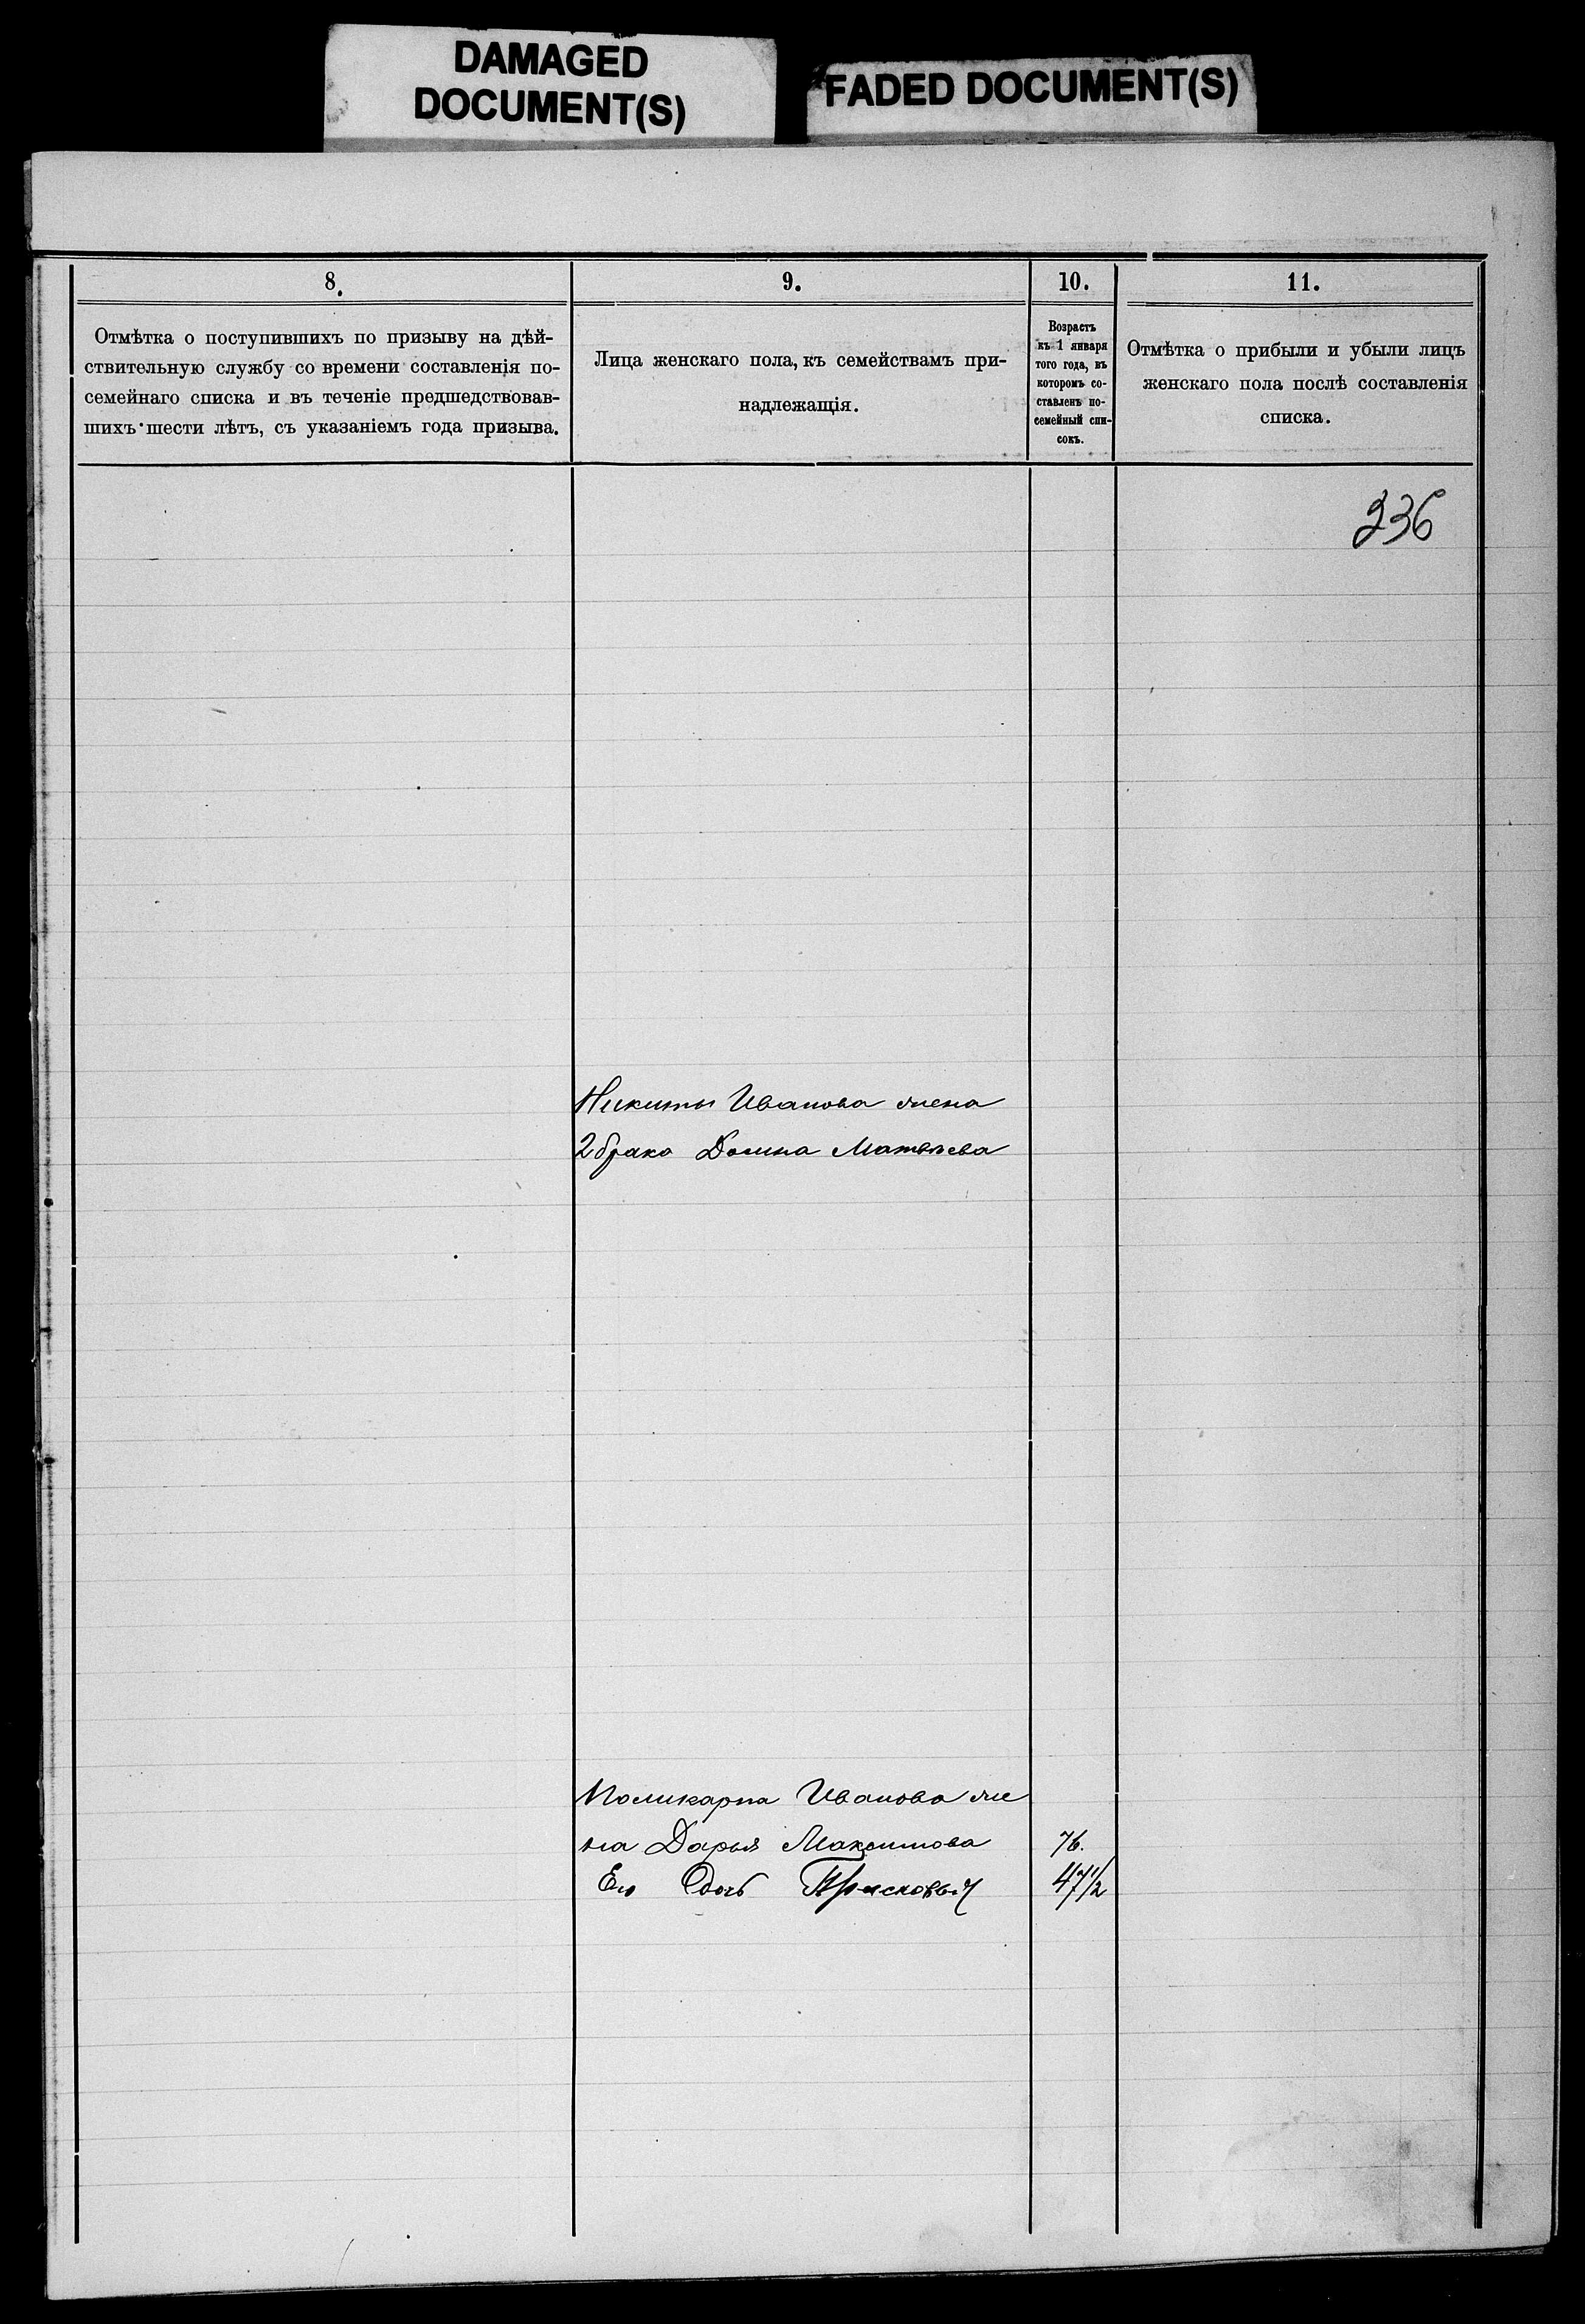 DAMAGED
DOCUMENT(S)
FADED DOCUMENT(S)
8.
9.
10.
11.
Отмѣтка о поступившихъ по призыву на дѣй-
ствительную службу со времени составленія по-
семейнаго списка и въ теченіе предшедствовав-
шихъ шести лѣтъ, съ указаніемъ года призыва.
Лица женскаго пола, къ семействамъ при-
надлежащія.
Возрастъ
къ 1 января
того года, въ
которомъ со-
ставленъ по-
семейный спи-
сокъ.
Отмѣтка о прибыли и убыли лицъ
женскаго пола послѣ составленія
списка.
236
Никиты Иванова жена
2 брака Домна Матвѣева
Поликарпа Иванова же
на Дарья Максимова 76.
Его дочь Прасковья 47 1/2